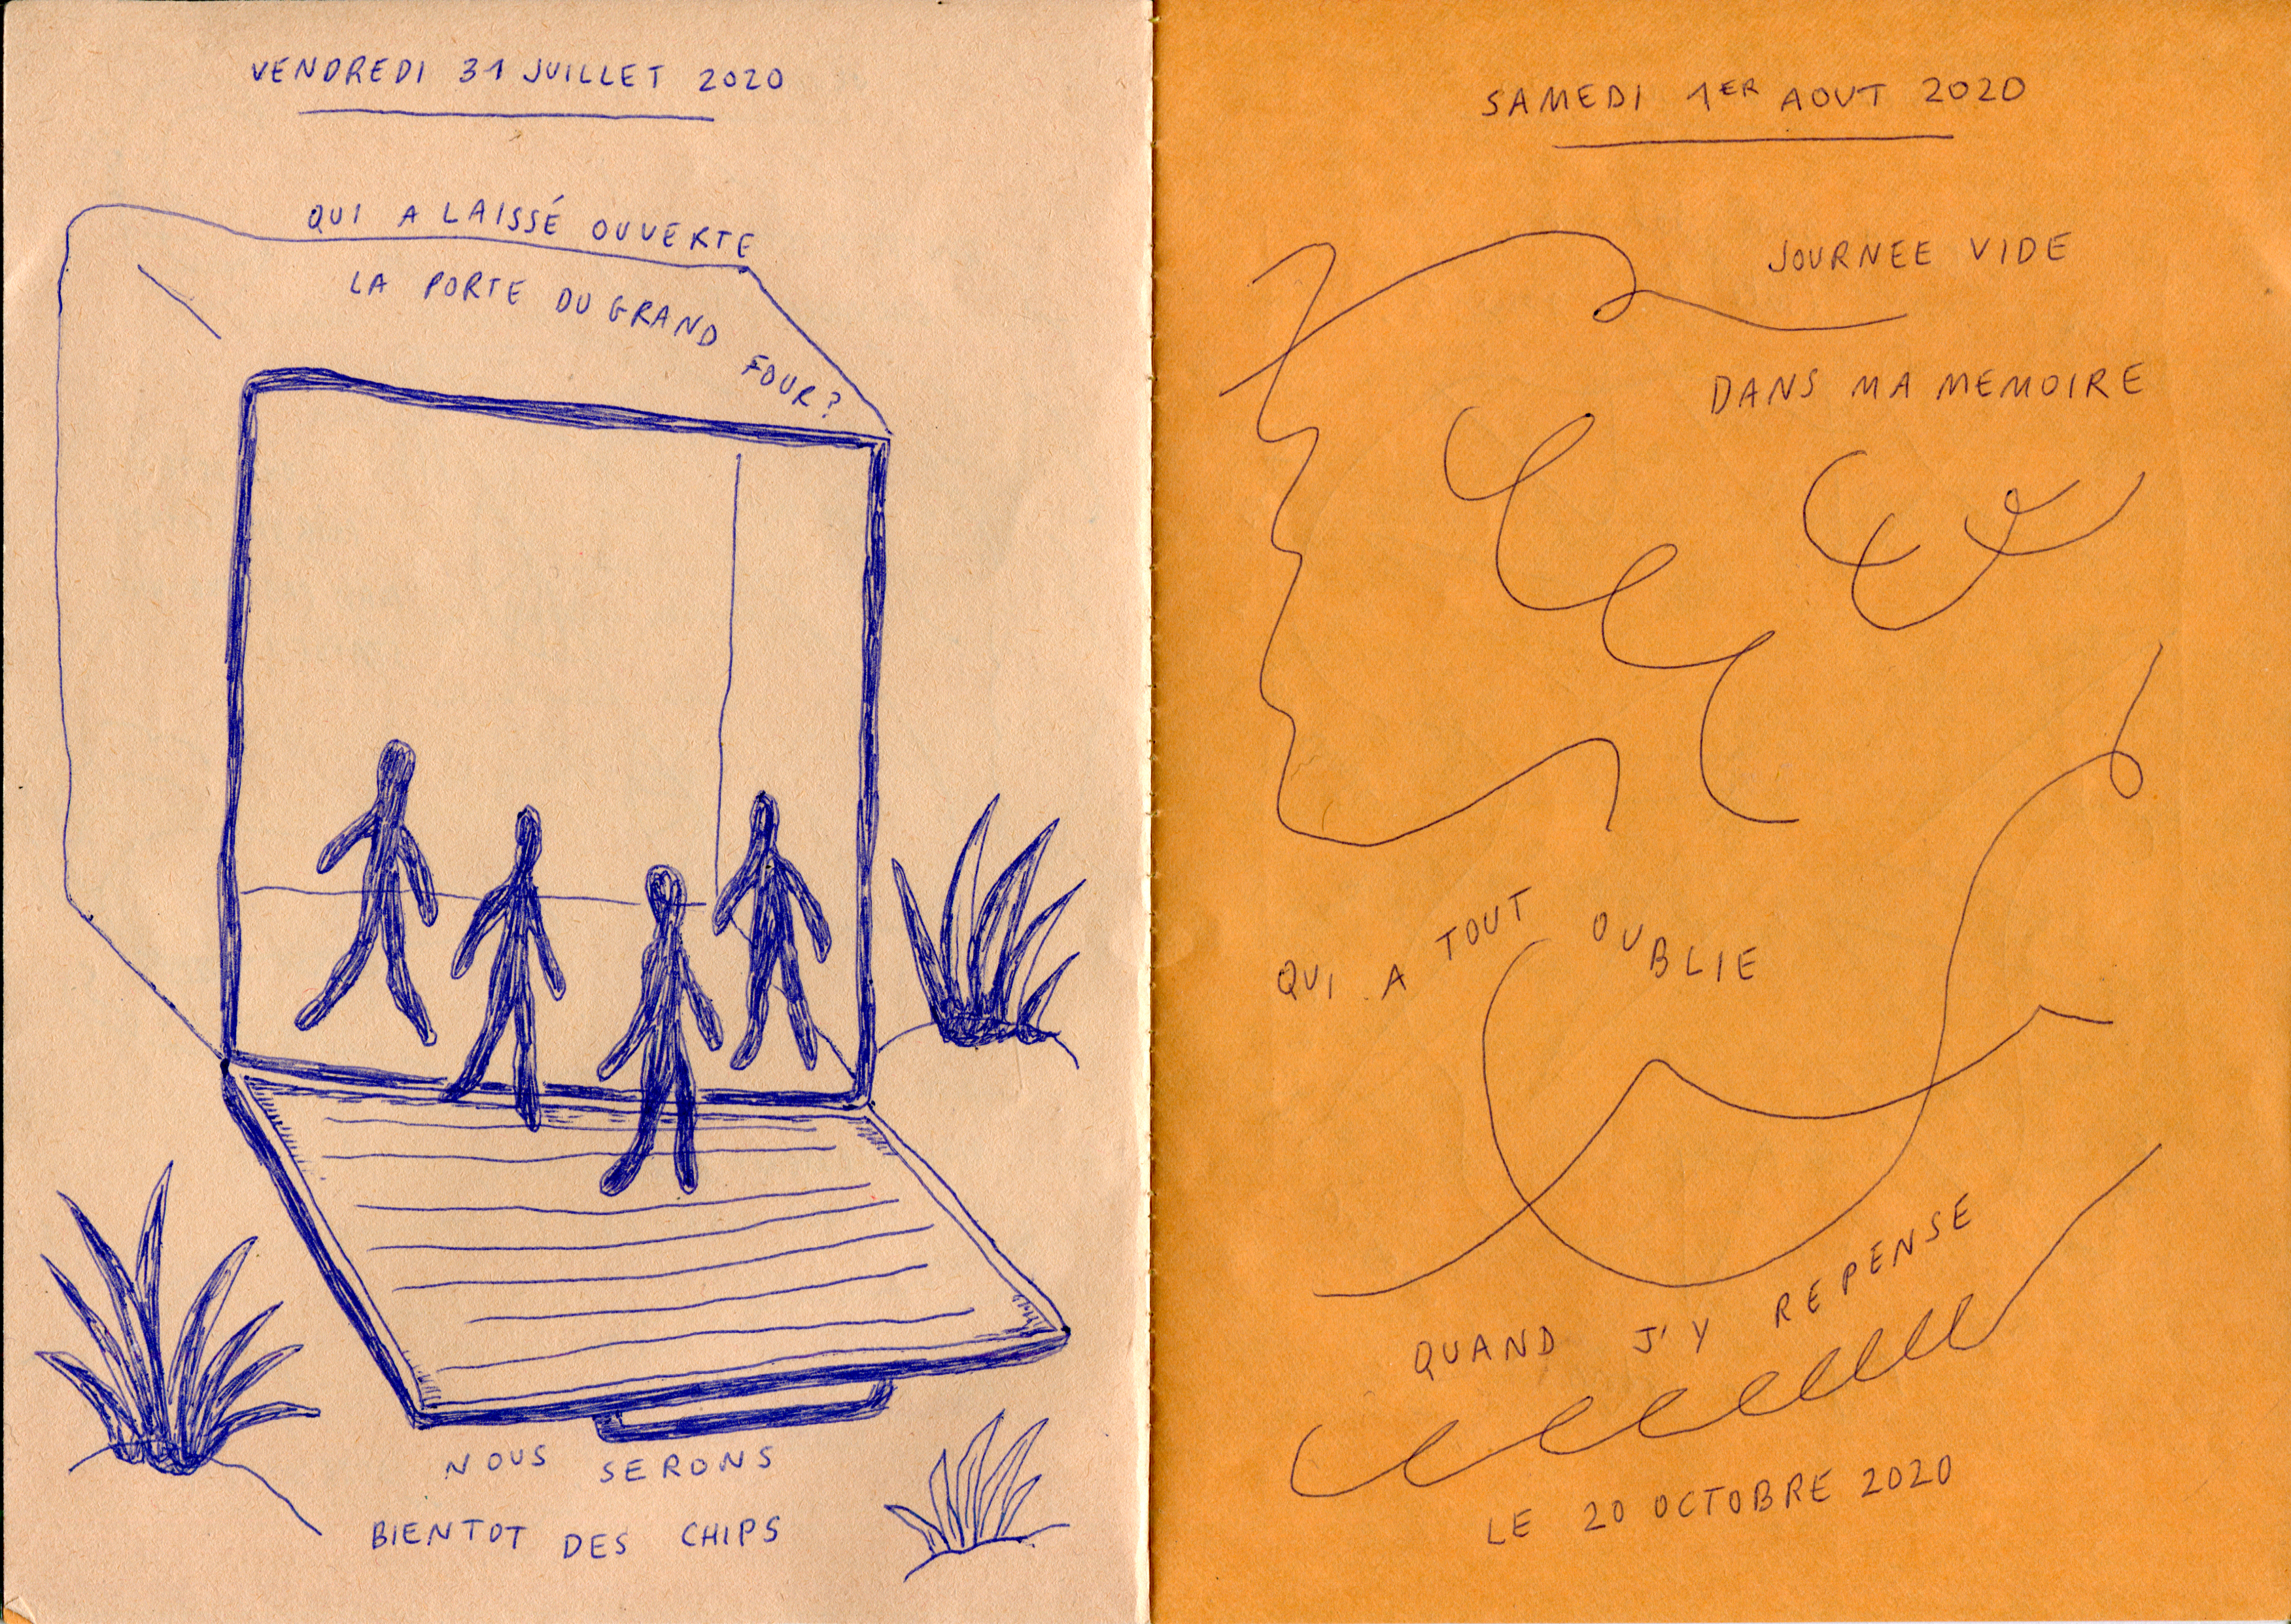 VENDREDI 31 JUILLET 2020
QUI A LAISSÉ OUVERTE
LA PORTE DU GRAND FOUR?
NOUS SERONS
BIENTOT DES CHIPS
SAMEDI 1ER AOUT 2020
JOURNEE VIDE
DANS MA MEMOIRE
QUI A TOUT OUBLIE
QUAND J'Y REPENSE
LE 20 OCTOBRE 2020